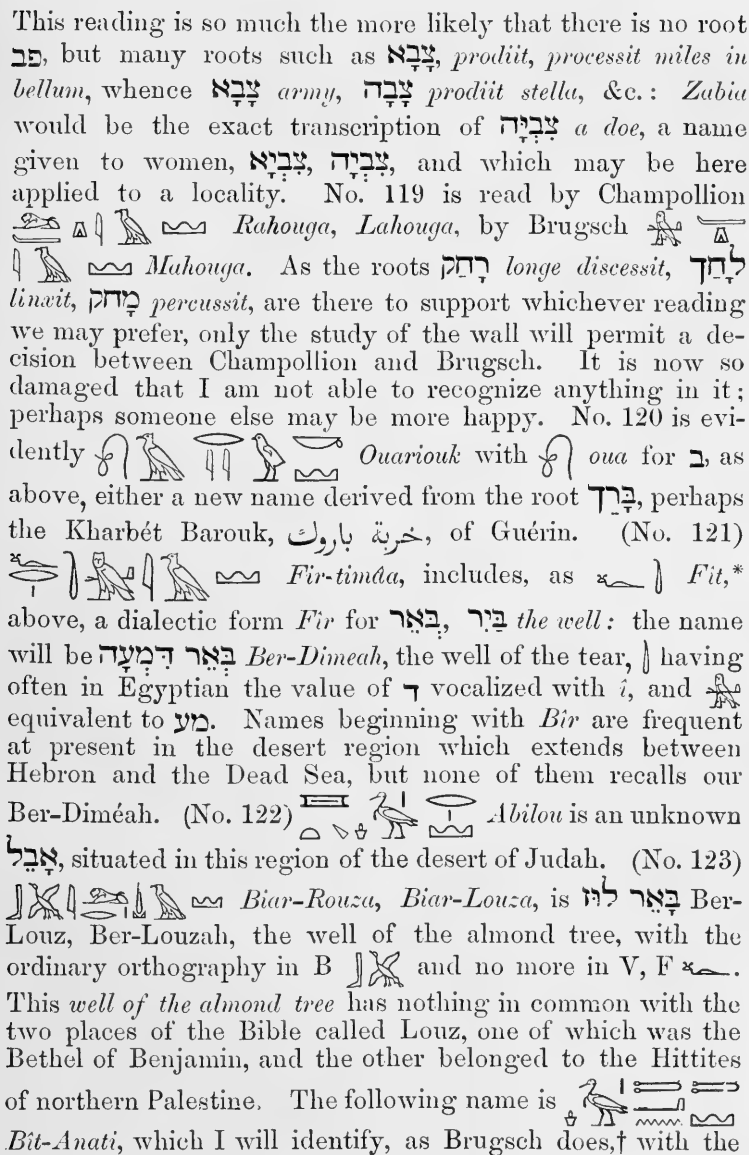 This reading is so much the more likely that there is no root
פב, but many roots such as צָבָא, prodiit, processit miles in
bellum, whence צָבָא army, צָבָה prodiit stella, &c.: Zabia
would be the exact transcription of צִבְיָּה a doe, a name
given to women, צִבְיָא, צִבְיָה, and which may be here
applied to a locality. No. 119 is read by Champollion
Rahouga, Lahouga, by Brugsch
Mahouga. As the roots רָחַק longe discessit, לָחַךְ
linxit, מָחַק percussit, are there to support whichever reading
we may prefer, only the study of the wall will permit a de-
cision between Champollion and Brugsch. It is now so
damaged that I am not able to recognize anything in it;
perhaps someone else may be more happy. No. 120 is evi-
dently Ouariouk with oua for ב, as
above, either a new name derived from the root בָּרַךְ, perhaps
the Kharbét Barouk, خربة باروك, of Guérin. (No. 121)
Fir-timâa, includes, as Fit,*
above, a dialectic form Fir for בְּאֵר, בַּיִר the well: the name
will be בְּאֵר דִּמְעָה Ber-Dimeah, the well of the tear, having
often in Egyptian the value of ד vocalized with î, and
equivalent to מע. Names beginning with Bîr are frequent
at present in the desert region which extends between
Hebron and the Dead Sea, but none of them recalls our
Ber-Diméah. (No. 122) Abilou is an unknown
אָבֵל, situated in this region of the desert of Judah. (No. 123)
Biar-Rouza, Biar-Louza, is בְּאֵר לוּז Ber-
Louz, Ber-Louzah, the well of the almond tree, with the
ordinary orthography in B and no more in V, F.
This well of the almond tree has nothing in common with the
two places of the Bible called Louz, one of which was the
Bethel of Benjamin, and the other belonged to the Hittites
of northern Palestine. The following name is
Bît-Anati, which I will identify, as Brugsch does,† with the